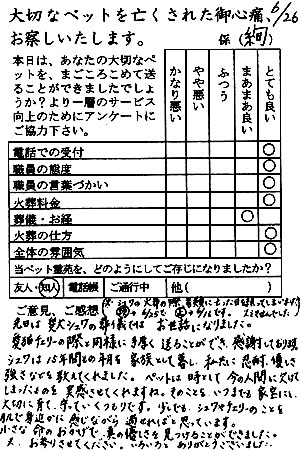 大切なペットを亡くされた御心痛、
お察しいたします。
6/26
係(絢)
本日は、あなたの大切なペ
ットを、まごころこめて送
ることができましたでしょ
うか?より一層のサービス
向上のためにアンケートに
ご協力下さい。
かなり悪い
やや悪い
ふつう
まあまあ良い
とても良い
電話での受付 ○
職員の態度 ○
職員の言葉づかい ○
火葬料金 ○
葬儀・お経 ○
火葬の仕方 ○
全体の雰囲気 ○
当ペット霊苑を、どのようにしてご存じになりましたか?
友人・知人 電話帳 ご通行中 他( )
ご意見、ご感想
先日は愛犬シュワの葬儀では お世話になりました。
愛猫チェリーの際と同様に手厚く送ることができ、感謝しております。
シュワは15年間もの年月を家族として暮し、私たちに忍耐、優しさ、
強さなどを教えてくれました。ペットは時として今の人間に欠けて
しまったものを実感させてくれますね。そのことを、いつまでも家宝にし、
大切に育て、守っていくつもりです。少しでも、シュワやチェリーのことを
肌で身近かに感じながら過せればと思っています。
小さな命のおかげで、真の優しさを見つけることができました。
又、お参りさせてください。いろいろとありがとうございました。